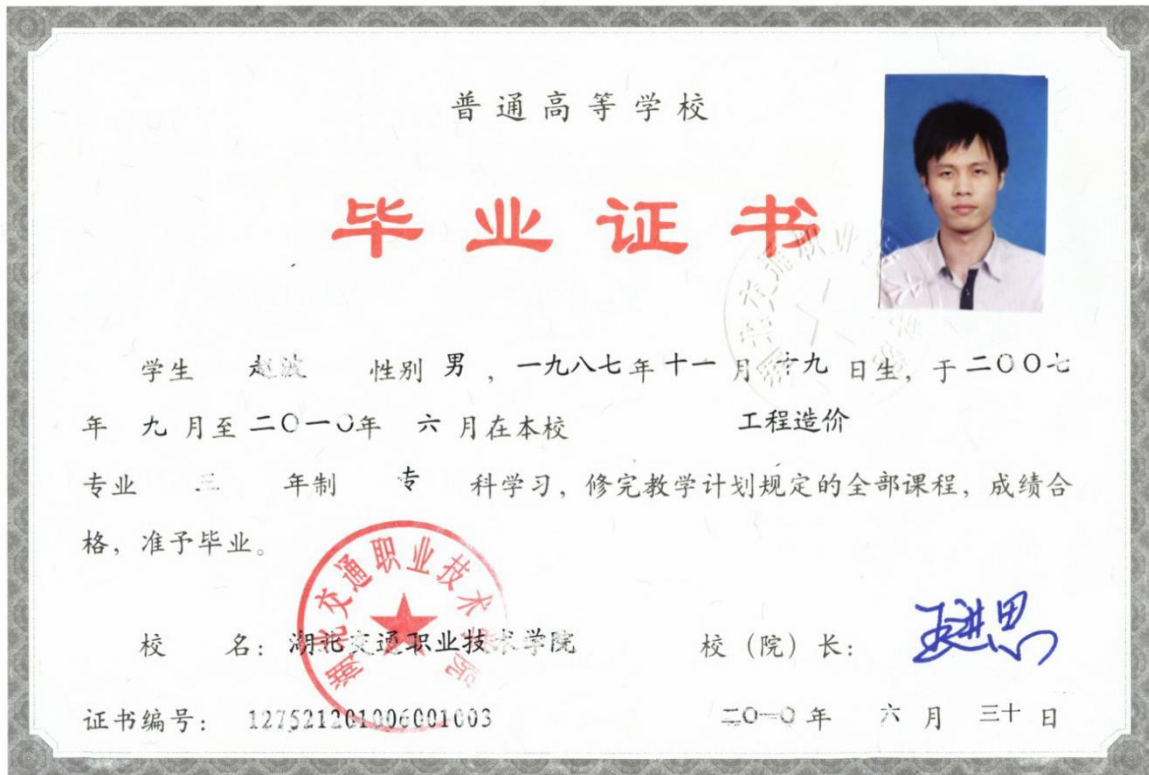 普通高等学校
毕业证书
学生 赵波 性别 男，一九八七年十一月十九日生，于二〇〇七
年 九 月至二〇一〇年 六 月在本校 工程造价
专业 三 年制 专 科学习，修完教学计划规定的全部课程，成绩合
格，准予毕业。
湖北交通职业技术学院
校 名：湖北交通职业技术学院 校（院）长：
证书编号：127521201006001003 二〇一〇年 六 月 三十 日